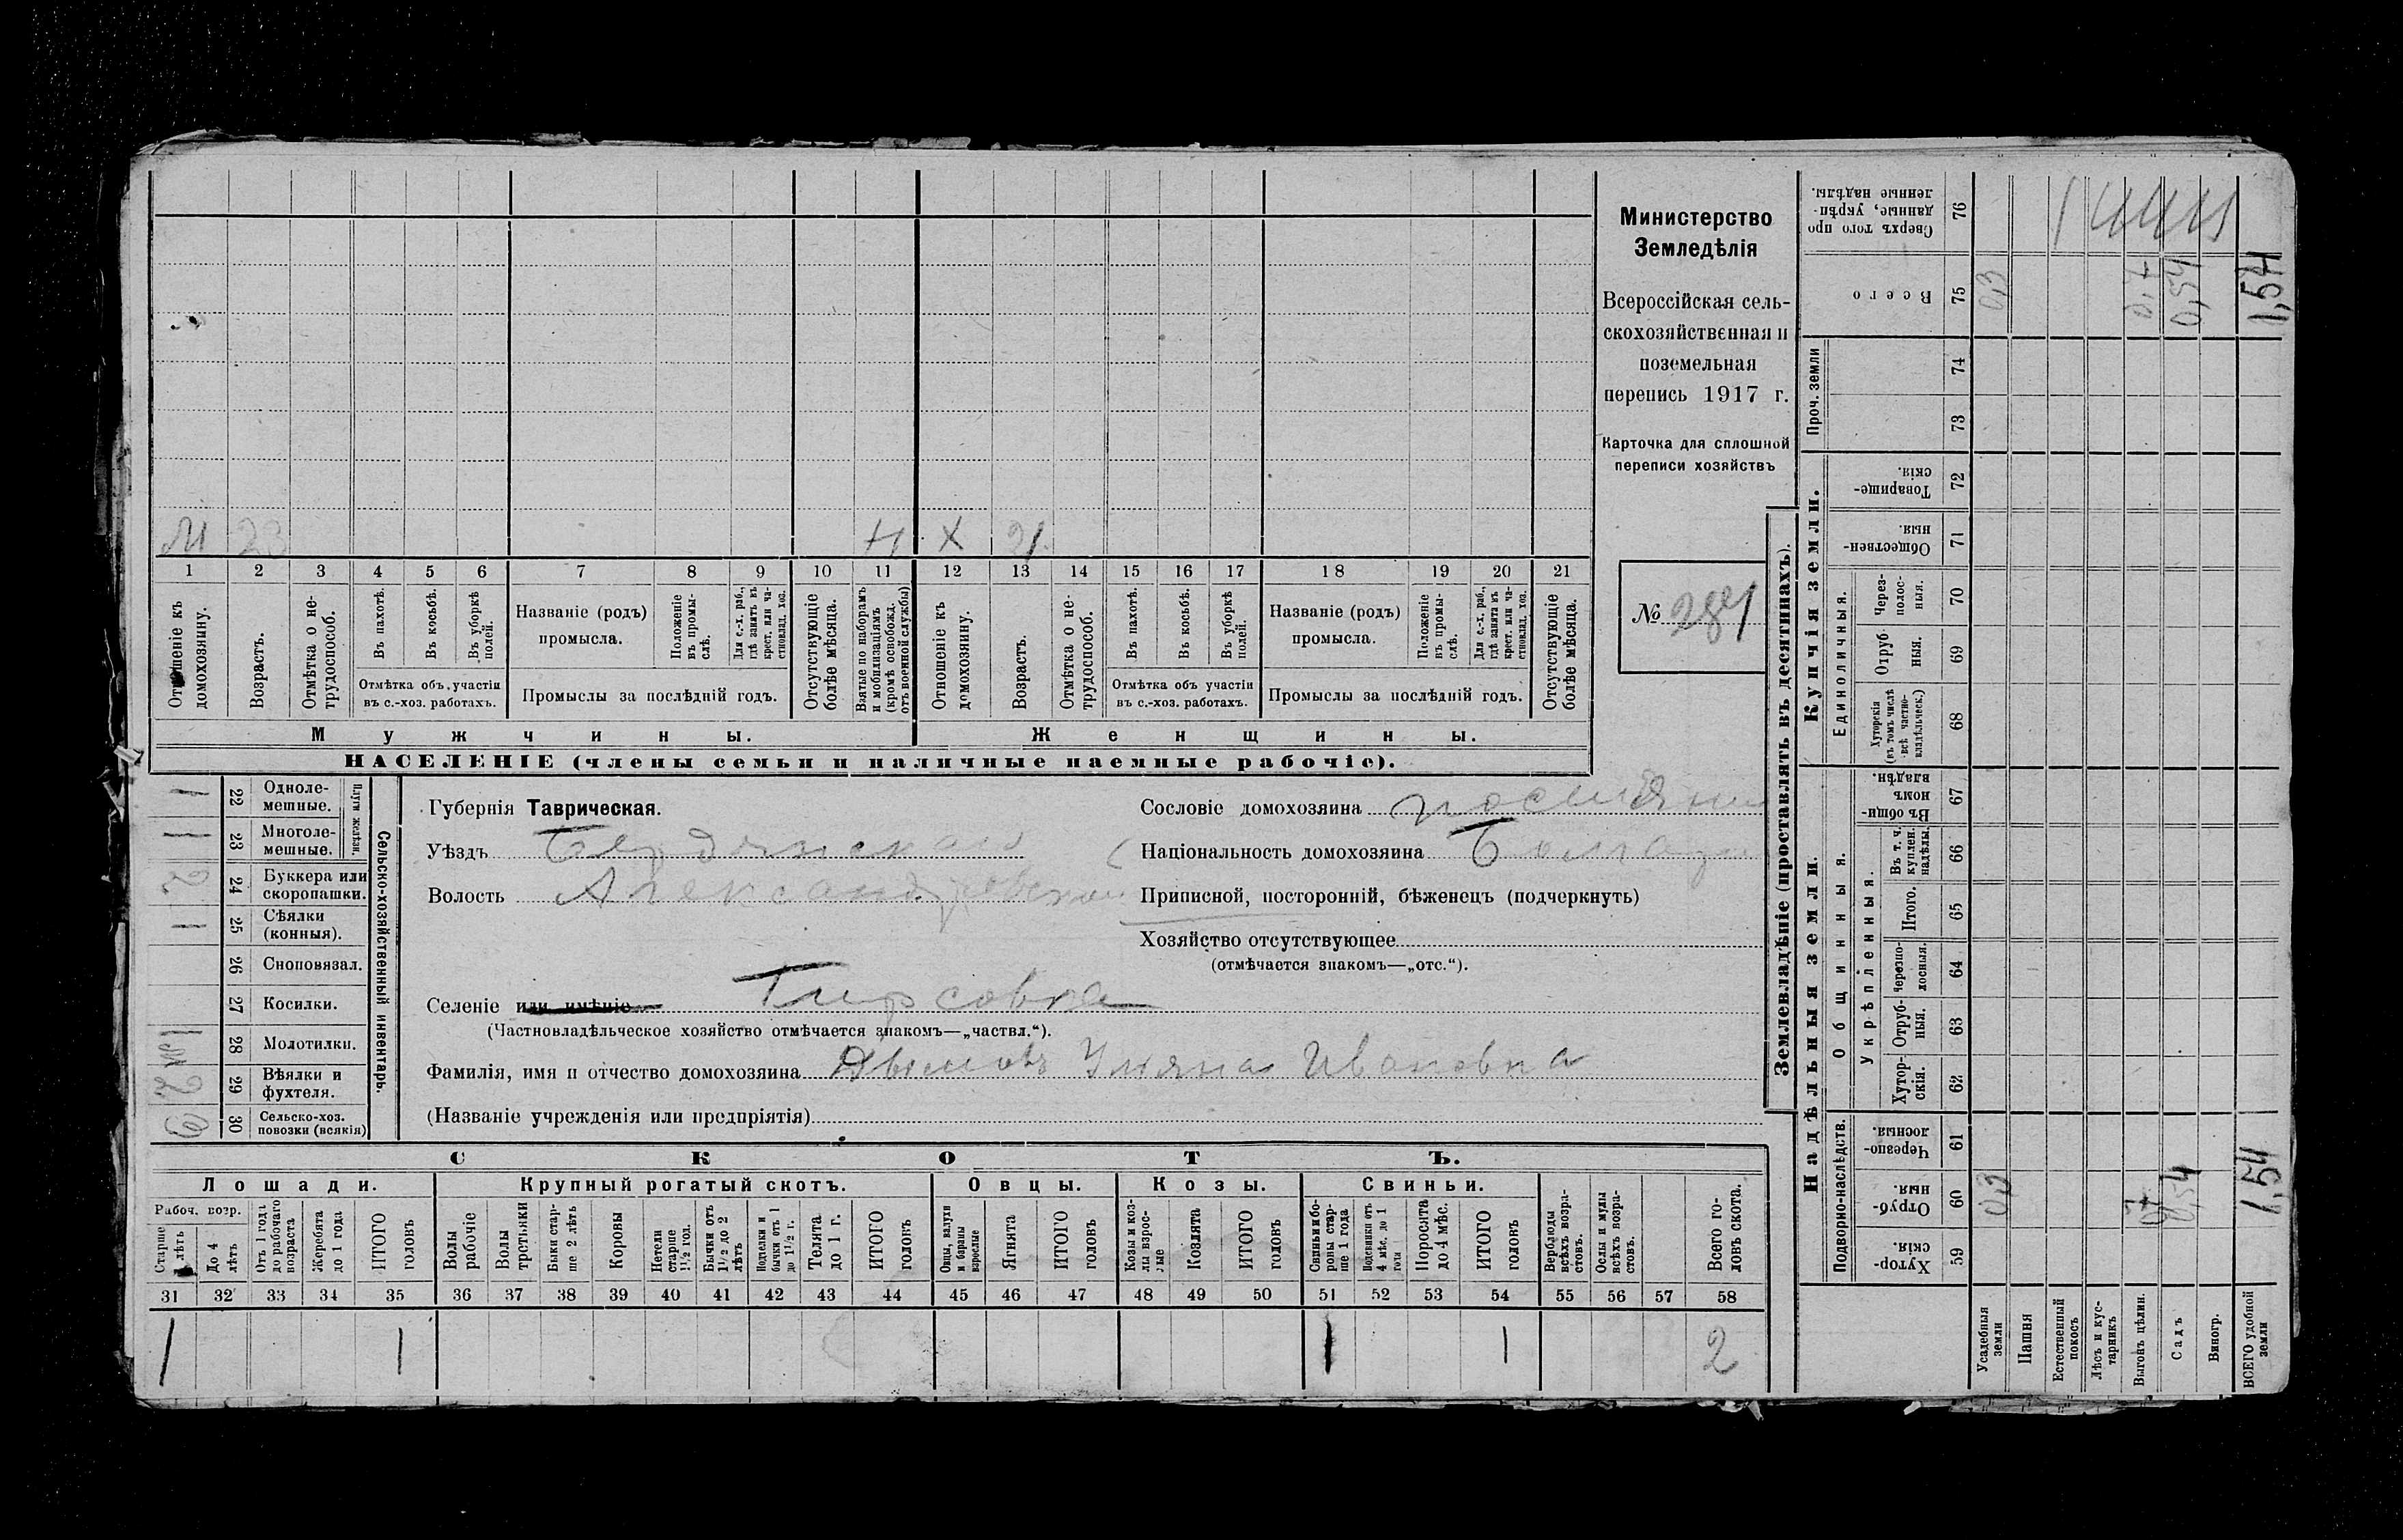 Министерство
Земледѣлія
Всероссійская сель-
скохозяйственная и
поземельная
перепись 1917 г.
Карточка для сплошной
переписи хозяйствъ
№ 281
М 23 Н Х 21
1 2 3 4 5 6 7 8 9 10 11 12 13 14 15 16 17 18 19 20 21
Отношеніе къ домохозяину.
Возрастъ.
Отмѣтка о не-трудоспособ.
Въ пахотѣ.
Въ косьбѣ.
Въ уборкѣ полей.
Отмѣтка объ участіи
въ с.-хоз. работахъ.
Названіе (родъ)
промысла.
Положеніе въ промы-слѣ.
Для с.-х. раб., гдѣ занятъ въ крест. или ча-стновлад. хоз.
Промыслы за послѣдній годъ.
Отсутствующіе болѣе мѣсяца.
Взятые по наборамъ и мобилизаціямъ (кромѣ освобожд. отъ военной службы)
Отношеніе къ домохозяину.
Возрастъ.
Отмѣтка о не-трудоспособ.
Въ пахотѣ.
Въ косьбѣ.
Въ уборкѣ полей.
Отмѣтка объ участіи
въ с.-хоз. работахъ.
Названіе (родъ)
промысла.
Положеніе въ промы-слѣ.
Для с.-х. раб., гдѣ занята въ крест. или ча-стновлад. хоз.
Промыслы за послѣдній годъ.
Отсутствующіе болѣе мѣсяца.
Мужчины.
Женщины.
НАСЕЛЕНІЕ (члены семьи и наличные наемные рабочіе).
Сельско-хозяйственный инвентарь.
Плуги желѣзн.
1 22 Одноле-мешные.
1 23 Многоле-мешные.
2 24 Буккера или скоропашки.
1 25 Сѣялки (конныя).
26 Сноповязал.
27 Косилки.
28 Молотилки.
2 29 Вѣялки и фухтеля.
6 30 Сельско-хоз. повозки (всякія)
Губернія Таврическая.
Уѣздъ Бердянскаго
Волость Александровской
Селеніе или имѣніе Гирсовка
(Частновладѣльческое хозяйство отмѣчается знакомъ—„частвл.“).
Сословіе домохозяина поселянинъ
Національность домохозяина Болгаринъ
Приписной, посторонній, бѣженецъ (подчеркнуть)
Хозяйство отсутствующее
(отмѣчается знакомъ—„отс.“).
Фамилія, имя и отчество домохозяина Ульяна Ивановна
(Названіе учрежденія или предпріятія)
СКОТЪ.
Лошади.
Крупный рогатый скотъ.
Овцы.
Козы.
Свиньи.
Рабоч. возр.
Старше 4 лѣтъ
До 4 лѣтъ
Отъ 1 года до рабочаго возраста
Жеребята до 1 года
ИТОГО головъ
Волы рабочіе
Волы трстьяки
Быки стар-ше 2 лѣтъ
Коровы
Нетели старше 1½ год.
Бычки отъ 1½ до 2 лѣтъ
Подтелки и бычки отъ 1 до 1½ г.
Телята до 1 г.
ИТОГО головъ
Овцы, валухи и бараны взрослые
Ягнята
ИТОГО головъ
Козы и коз-лы взрос-лые
Козлята
ИТОГО головъ
Свиньи и бо-ровы стар-ше 1 года
Подсвинки отъ 4 мѣс. до 1 года
Поросята до 4 мѣс.
ИТОГО головъ
Верблюды всѣхъ возра-стовъ.
Ослы и мулы всѣхъ возра-стовъ.
Всего го-ловъ скота.
31 32 33 34 35 36 37 38 39 40 41 42 43 44 45 46 47 48 49 50 51 52 53 54 55 56 57 58
1 1 1 1 2
Землевладѣніе (проставлять въ десятинахъ).
Надѣльныя земли.
Купчія земли.
Проч. земли
Подворно-наслѣдств.
Общинныя.
Укрѣпленныя.
Единоличныя.
Хутор-скія. 59
Отруб-ныя. 60
Черезпо-лосныя. 61
Хутор-скія. 62
Отруб-ныя. 63
Черезпо-лосныя. 64
Итого. 65
Въ т. ч. куплен. надѣлы. 66
Въ общи-номъ владѣн. 67
Хуторскія (въ томъ числѣ всѣ частно-владѣльческ.) 68
Отруб ныя. 69
Через-полос-ныя. 70
Обществен-ныя. 71
Товарище-скія. 72
73
74
Всего 75
Сверхъ того про данные, укрѣп-ленные надѣлы. 76
Усадебныя земли 0,3 0,3
Пашня
Естественный покосъ
Лѣсъ и кус-тарникъ
Выгонъ цѣлин. 0,7 0,7
Садъ 0,54 0,54
Виногр.
ВСЕГО удобной земли 1,54 1,54